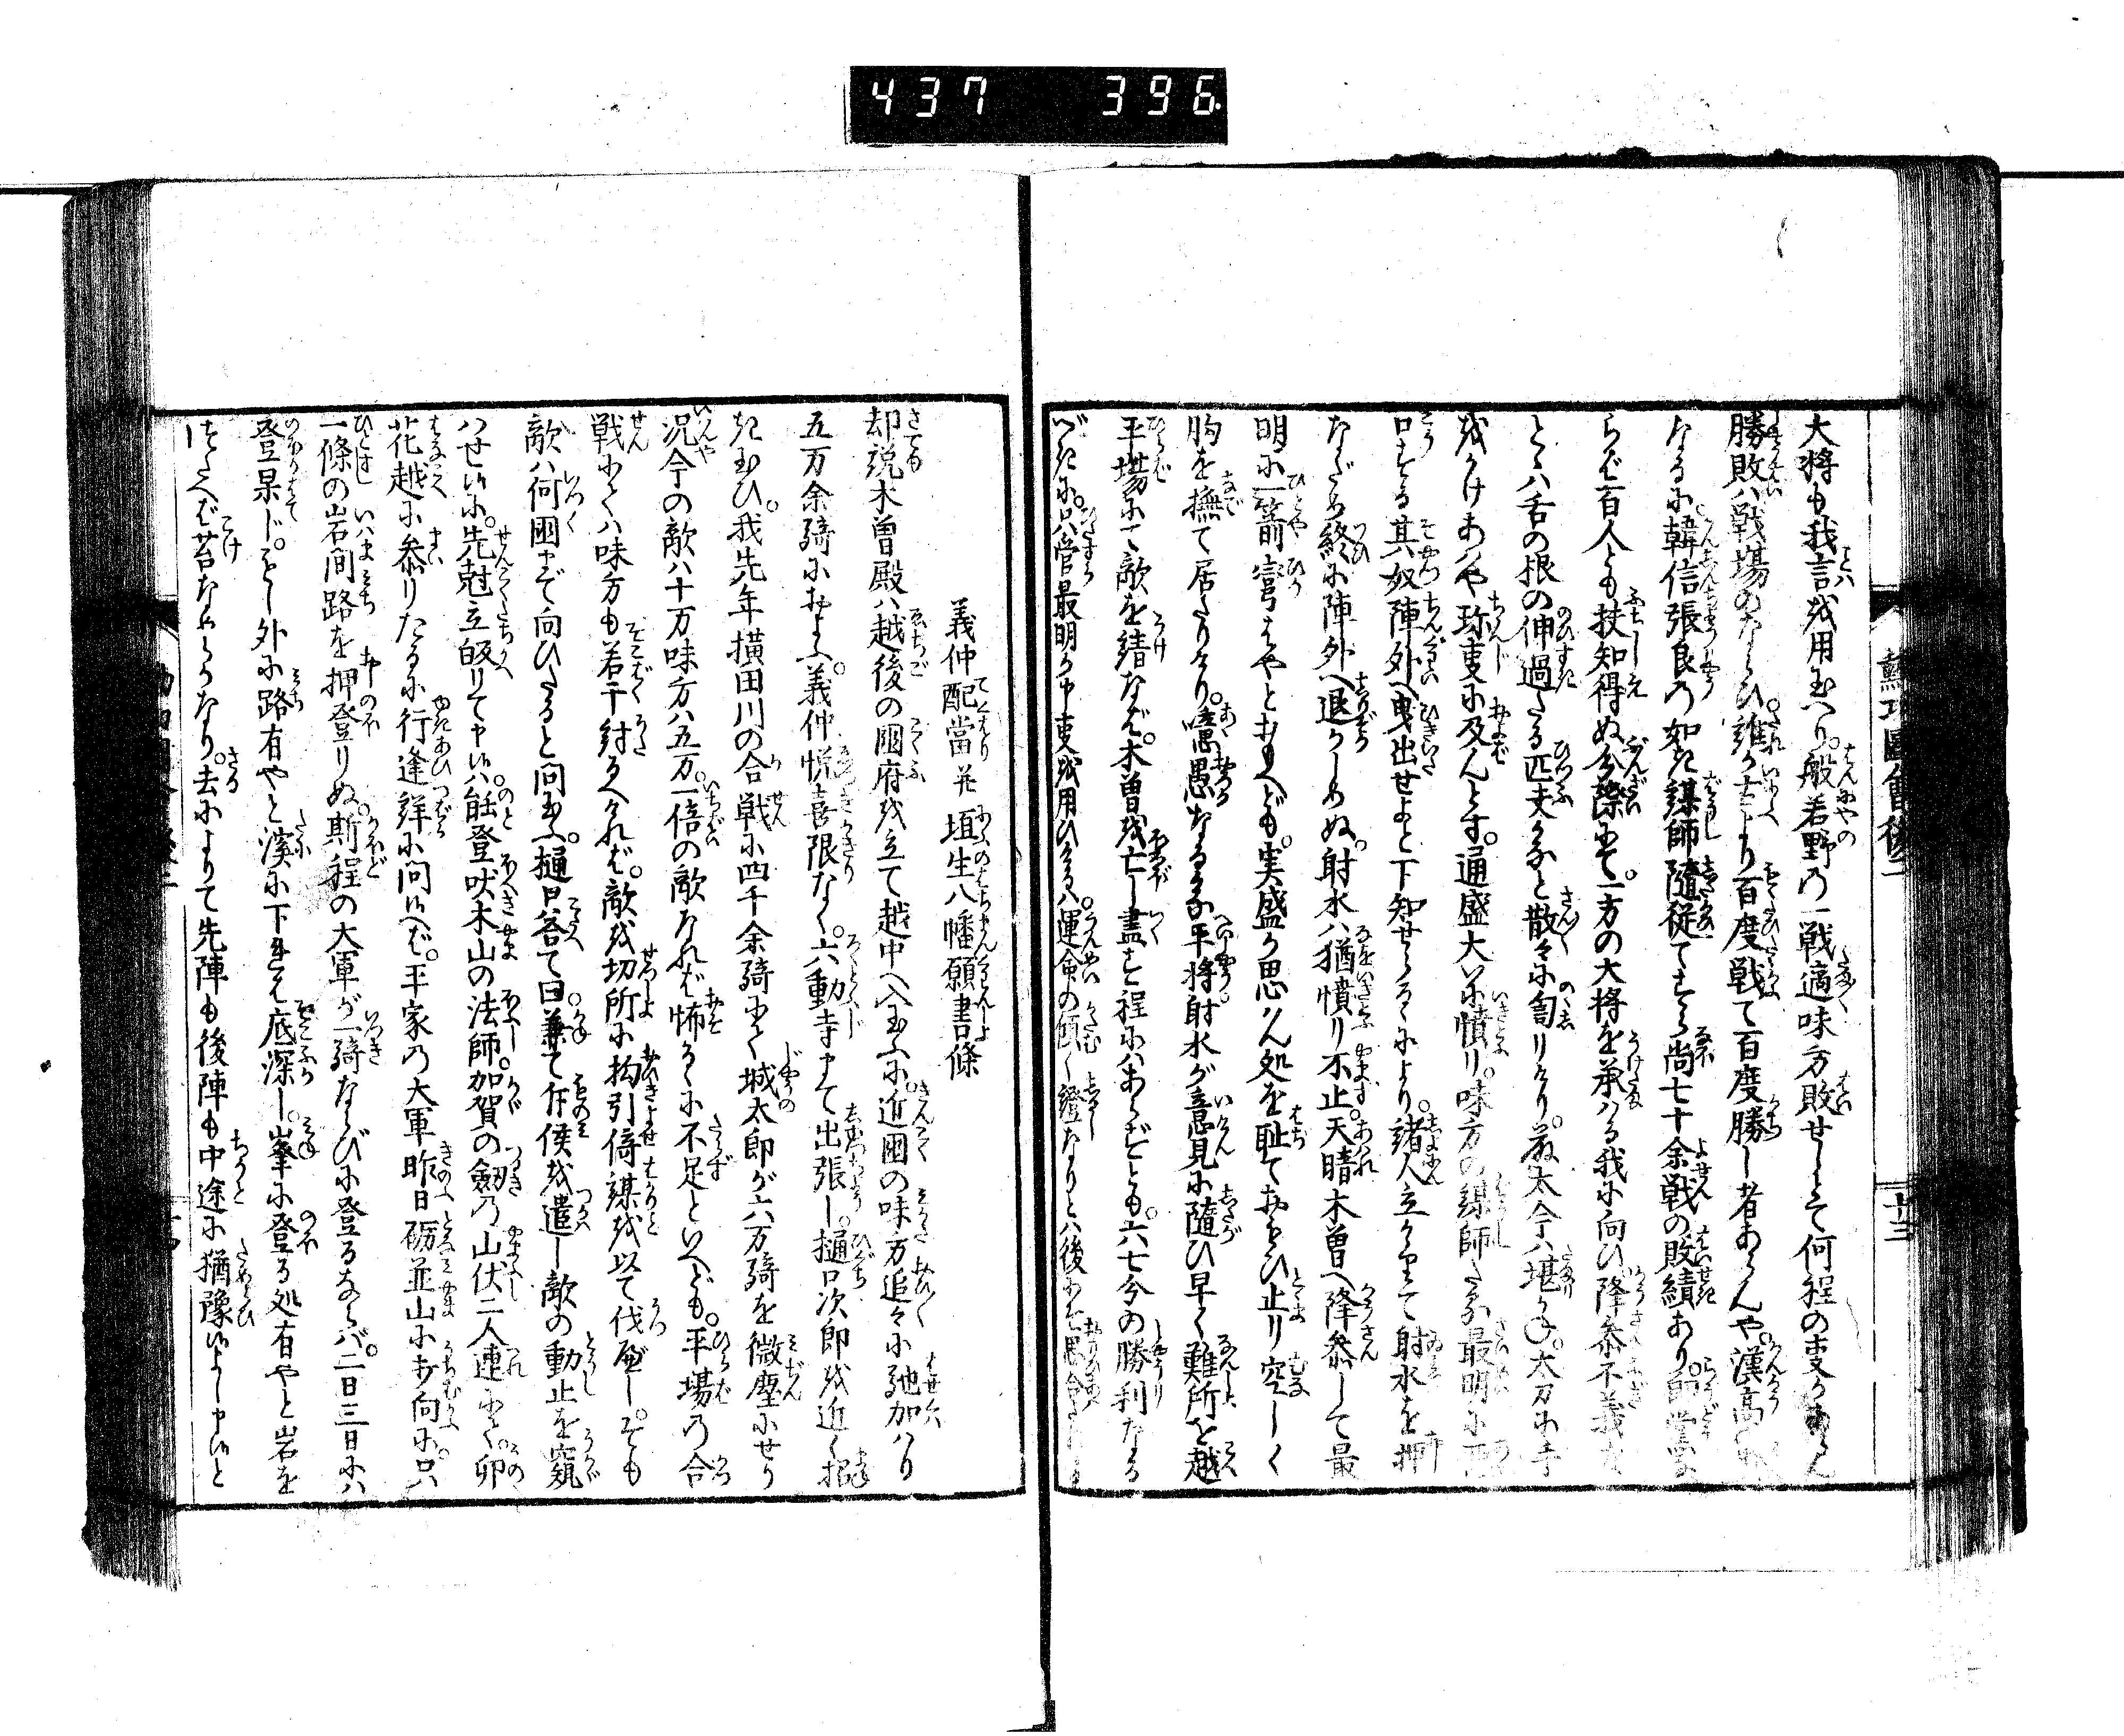 437 396
大将も我言を用玉へり。般若野の一戦適味方敗せしとて何程の事かあらん
勝敗ハ戦場のならひ誰か古より百度戦て百度勝し者あらんや。漢高
なるに韓信張良の如き謀師随従てすら尚七十余戦の敗績あり。
らば百人とも扶知得ぬ分際にて。一方の大将を承ハる我に向ひ降参不義
とハ舌の根の伸過たる匹夫かなと散々に罵りけり。最太今ハ堪かね。太刀に手
をかけあハや珍事に及んとす。通盛大いに憤り。味方の謀師たる最明に
口する其奴陣外へ曳出せよと下知せらるゝにより。諸人立かゝりて射水を押
なだめ終に陣外へ退かしめぬ。射水ハ猶憤り不止。天晴木曽へ降参して最
明に一箭宦はやとおもへども。実盛が思ハん処を恥ておもひ止り空しく
胸を撫て居たりけり。嗚愚なるかな平将射水が意見に随ひ早く難所を越
平場にて敵を請なば。木曽を亡し尽す程にハあらずとも。六七分の勝利なる
べきに。只管最明が申事を用ひけるハ。運命の傾く証なりとハ後にぞ思合され
義仲配当并埴生八幡願書條
却説木曽殿ハ越後の国府を立て越中へ入玉ふに。近国の味方追々に馳加ハり
五万余騎におよぶ。義仲悦喜限なく。六動寺まて出張し。樋口次郎を近く招
き玉ひ。我先年横田川の合戦に四千余騎にて城太郎が六万騎を微塵にせり
況今の敵ハ十万味方ハ五万。一倍の敵なれば怖るゝに不足といへども。平場の合
戦にてハ味方も若干討るべけれバ。敵を切所に拘引倚謀を以て伐べし。そも
敵ハ何国まで向ひたると問玉ふ。樋口答て曰。兼て斥候を遣し敵の動止を窺
ハせ候に。先剋立皈りて申候ハ。能登吠木山の法師。加賀の劔の山伏二人連にて。卯
花越に参りたるに行逢詳に問候へば。平家の大軍昨日砺並山に打向に。只
一條の岩間路を押登りぬ。斯程の大軍が一騎ならびに登るならバ。二日三日にハ
登果じ。もし外に路有やと渓に下れば底深し。峯に登る処有やと岩を
つたへば苔なめらかなり。去によりて先陣も後陣も中途に猶豫候よし申候と